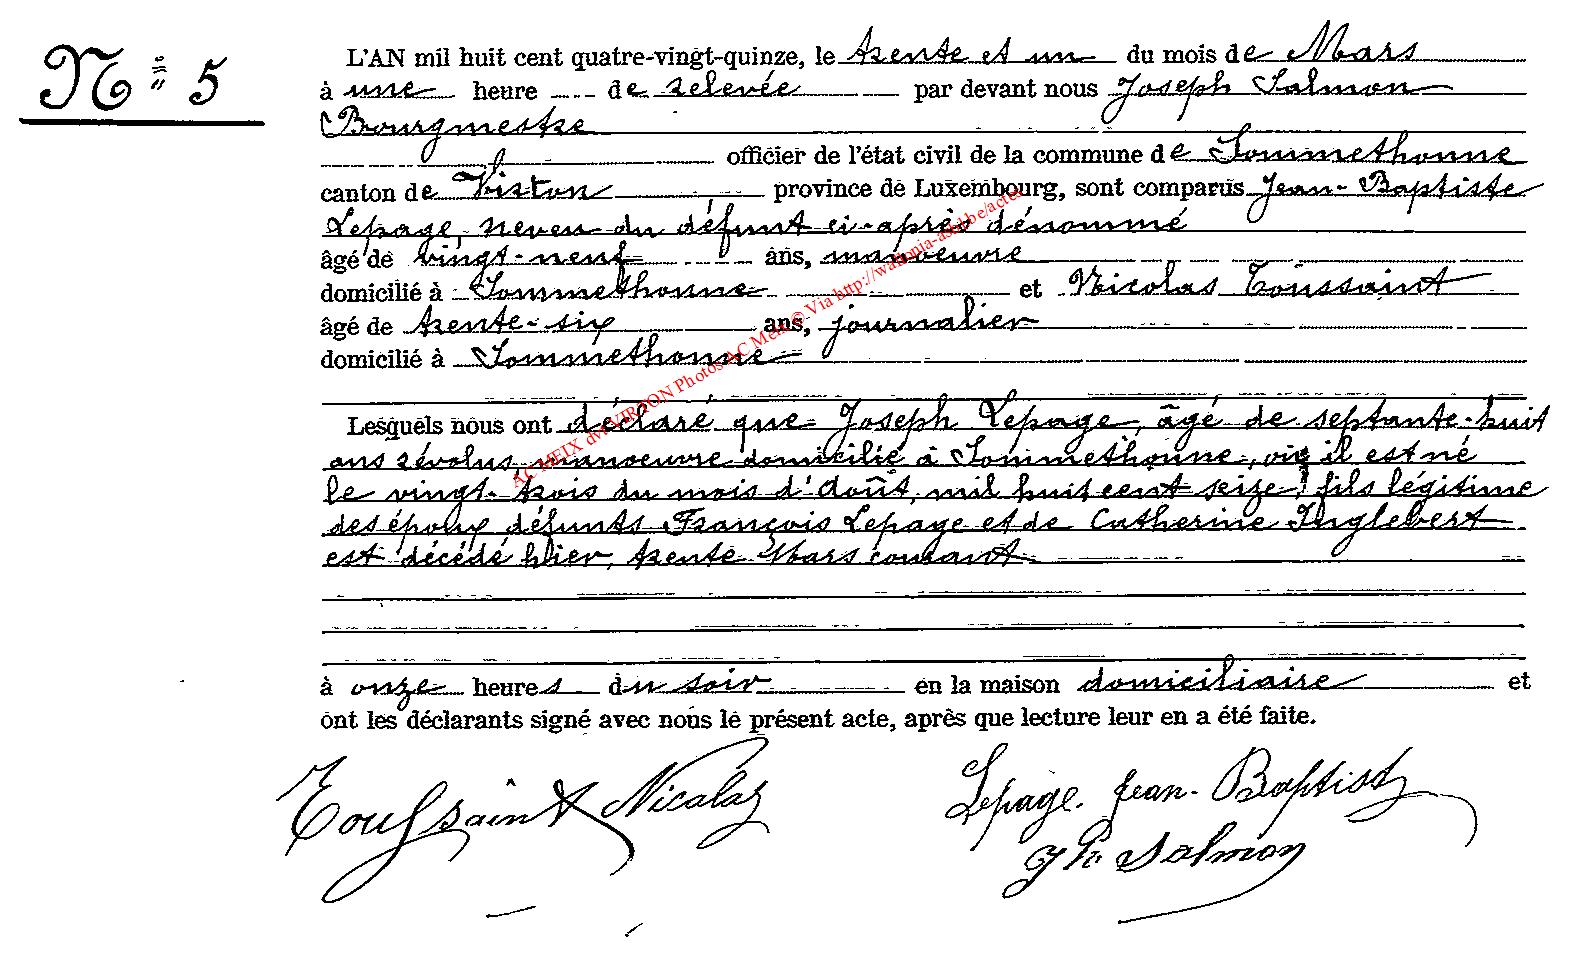 N° 5
L'AN mil huit cent quatre-vingt-quinze, le trente et un du mois de Mars
à une heure de relevée par devant nous Joseph Salmon
Bourgmestre
officier de l'état civil de la commune de Sommethonne
canton de Virton province de Luxembourg, sont comparus Jean-Baptiste
Lepage, neveu du défunt ci-après dénommé
âgé de vingt-neuf ans, manoeuvre
domicilié à Sommethonne et Nicolas Toussaint
âgé de trente-six ans, journalier
domicilié à Sommethonne
Lesquels nous ont déclaré que Joseph Lepage, âgé de septante-huit
ans révolus, manoeuvre domicilié à Sommethonne, où il est né
le vingt-trois du mois d'Août, mil huit cent seize, fils légitime
des époux défunts François Lepage et de Catherine Inglebert
est décédé hier, trente Mars courant
à onze heures du soir en la maison domiciliaire et
ont les déclarants signé avec nous le présent acte, après que lecture leur en a été faite.
Toussaint Nicolas Lepage. Jean-Baptist
Jh Salmon
AC MEIX dvt VIRTON Photos AC Meix © Via http://wallonia-asbl.be/actes